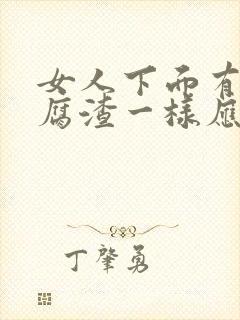 女人下面有
腐渣一样应
丁肇勇